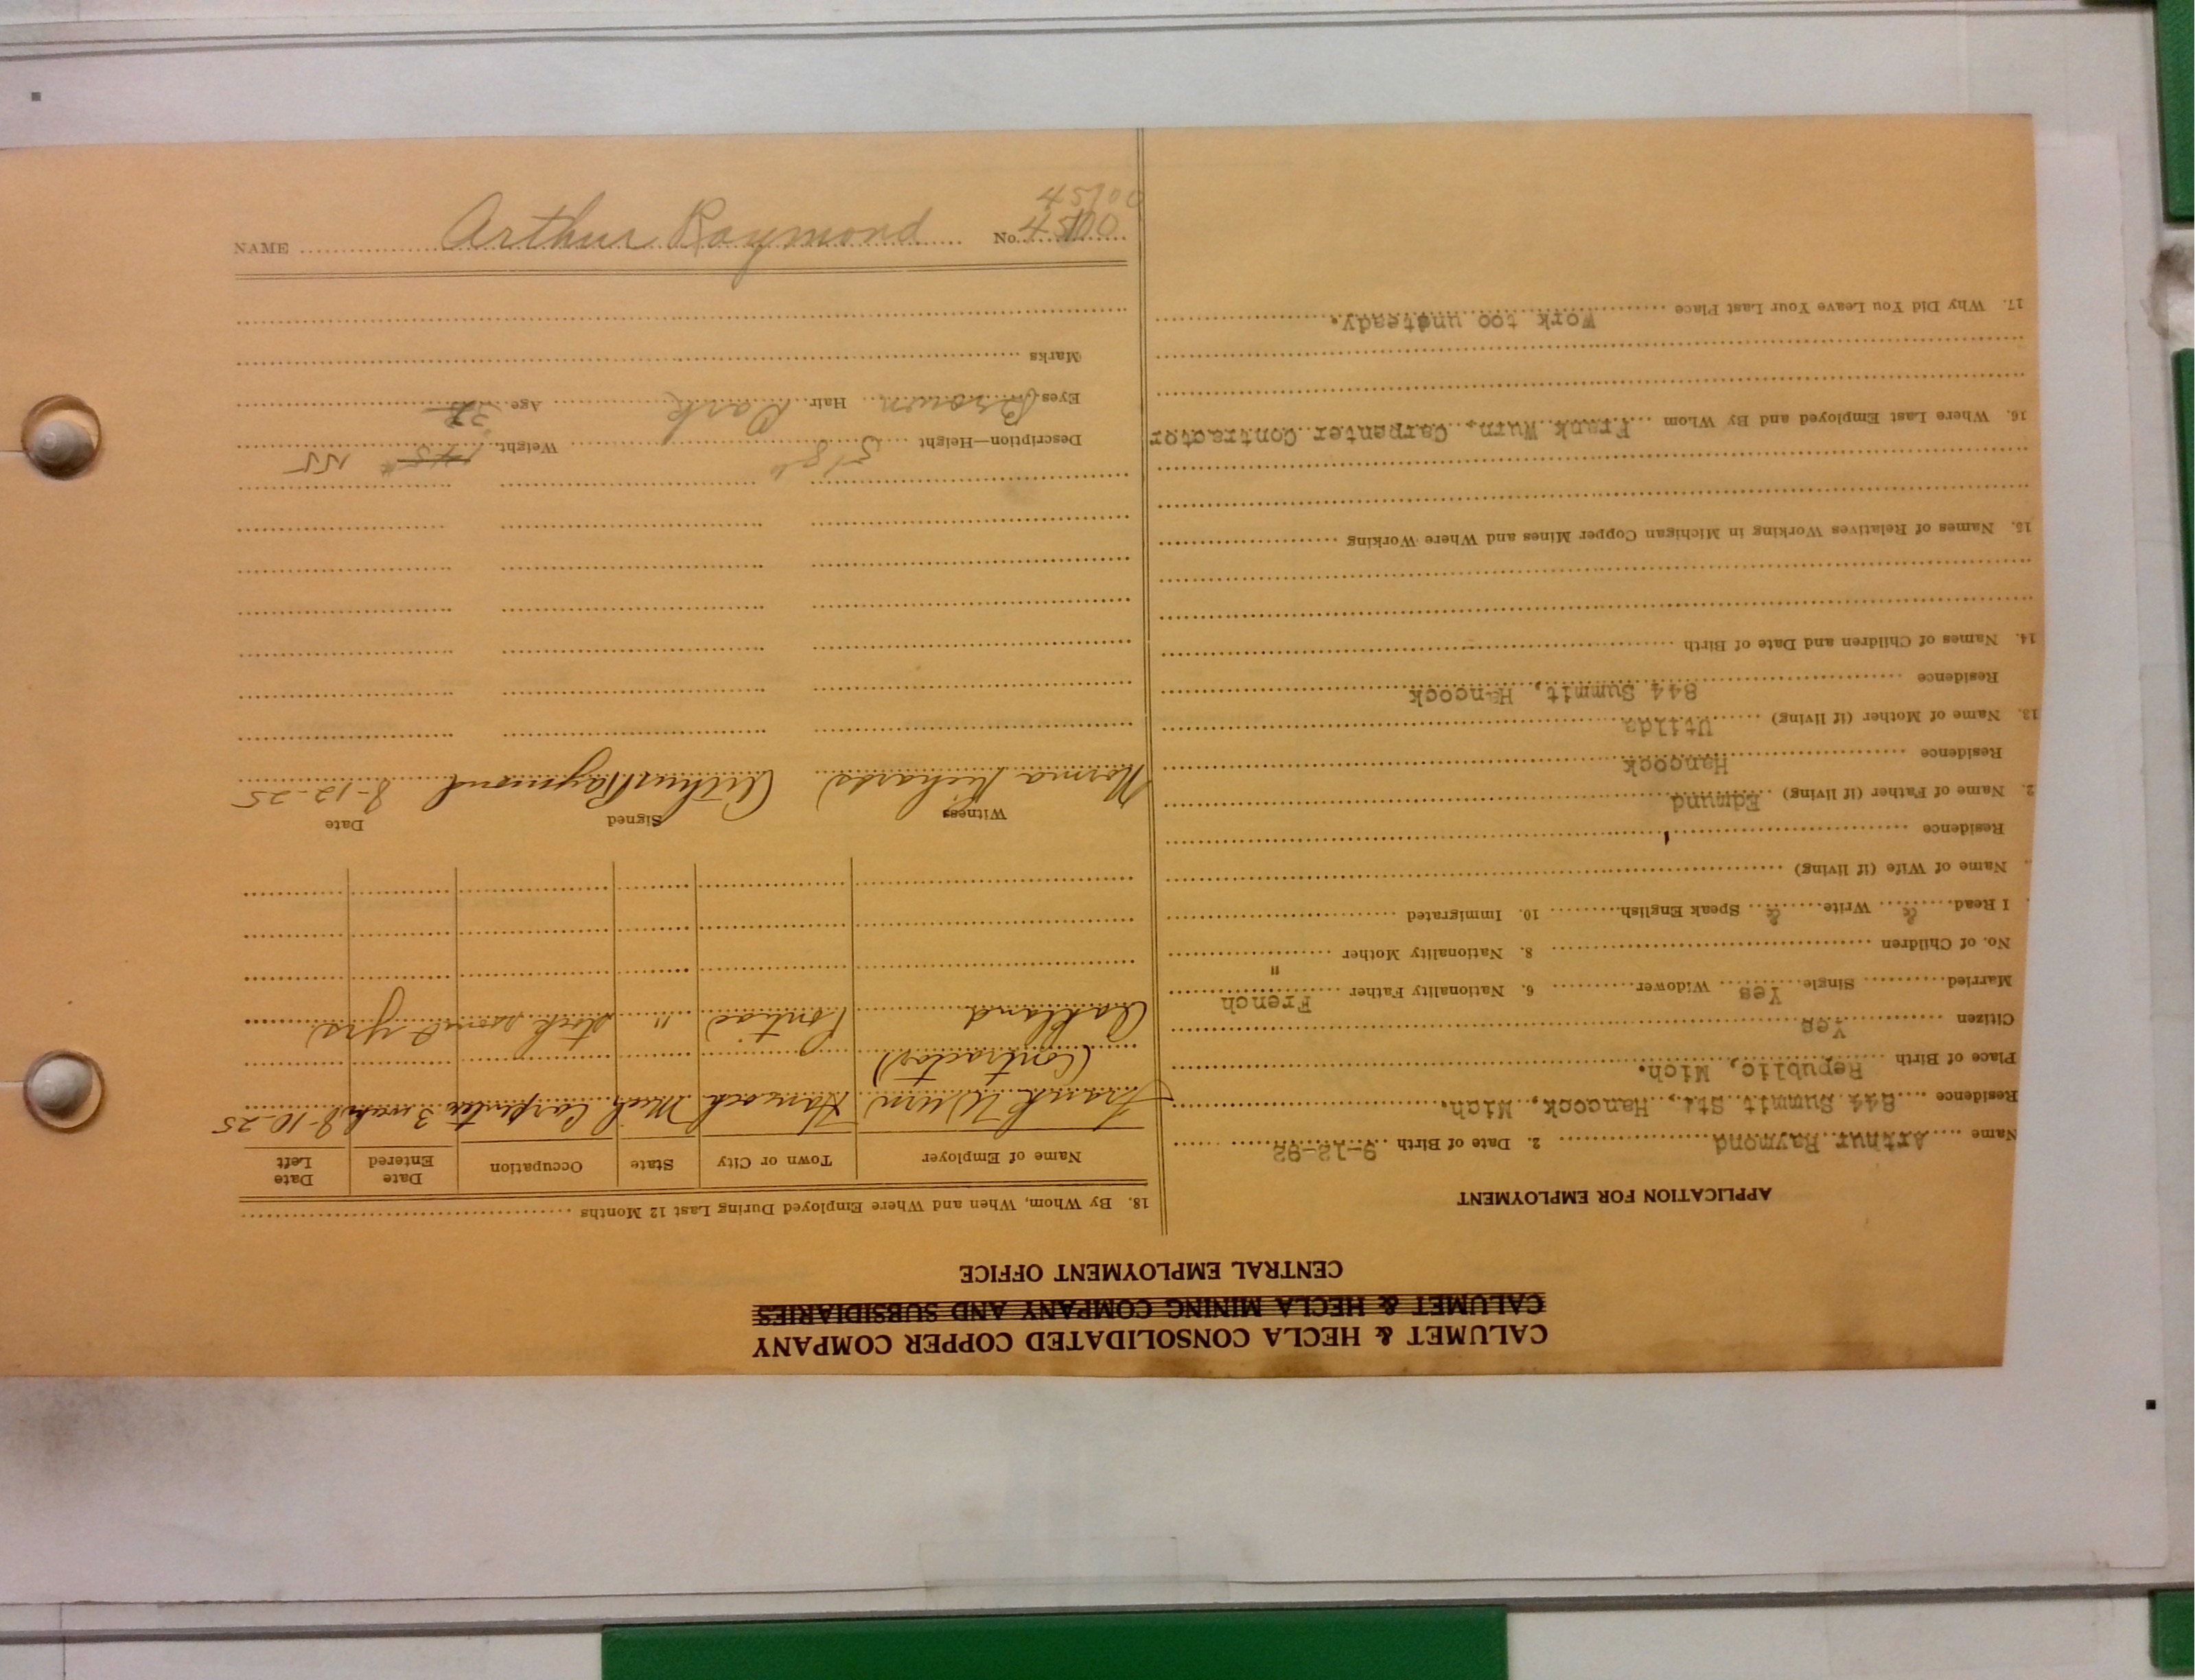 CALUMET & HECLA CONSOLIDATED COPPER COMPANY
CALUMET & HECLA MINING COMPANY AND SUBSIDIARIES
CENTRAL EMPLOYMENT OFFICE
APPLICATION FOR EMPLOYMENT
Name Arthur Raymond 2. Date of Birth 9-12-92
Residence 844 Summit St., Hancock, Mich.
Place of Birth Republic, Mich.
Citizen Yes
Married Single Yes Widower 6. Nationality Father French
No. of Children 8. Nationality Mother "
I Read & Write & Speak English 10. Immigrated
Name of Wife (if living)
Residence
2. Name of Father (if living) Edmund
Residence Hancock
13. Name of Mother (if living) Utilda
Residence 844 Summit, Hancock
14. Names of Children and Date of Birth
15. Names of Relatives Working in Michigan Copper Mines and Where Working
16. Where Last Employed and By Whom Frank Wurn, Carpenter Contractor
17. Why Did You Leave Your Last Place Work too unsteady.
18. By Whom, When and Where Employed During Last 12 Months
Name of Employer Town or City State Occupation Date Entered Date Left
Frank Wurn Hancock Mich Carpenter 3 weeks 8-10-25
(Contractor)
Oakland Pontiac " stock 2 yrs
Witness Signed Date
Norma Richards Arthur Raymond 8-12-25
Description—Height 5' 8" Weight 145 155
Eyes Brown Hair Dark Age 32
Marks
NAME Arthur Raymond No. 45100
45100